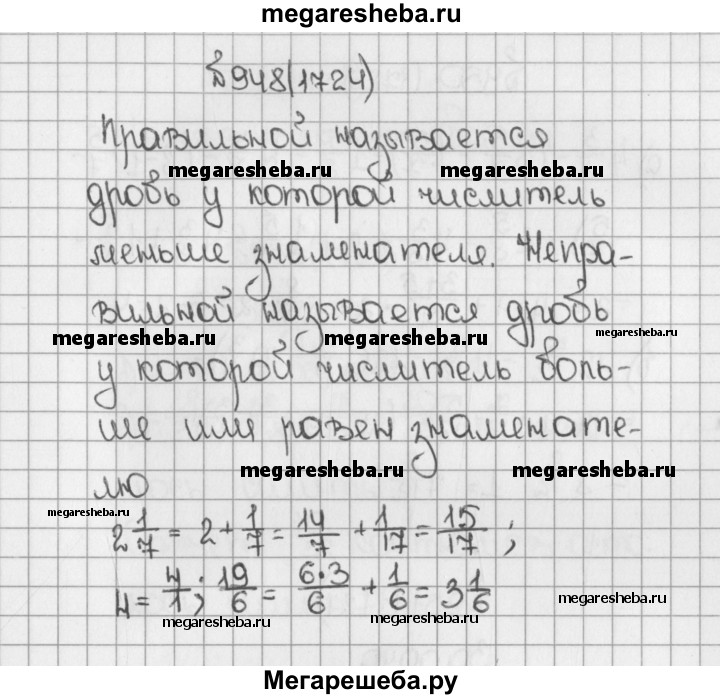 megaresheba.ru
№948(1724)
Правильной называется
megaresheba.ru megaresheba.ru
дробь у которой числитель
меньше знаменателя. Непра-
вильной называется дробь
megaresheba.ru megaresheba.ru megaresheba.ru
у которой числитель боль-
ше или равен знаменате-
megaresheba.ru megaresheba.ru
лю
megaresheba.ru
2 1/7 = 2 + 1/7 = 14/7 + 1/17 = 15/17 ;
4 = 4/1 ; 19/6 = 6·3/6 + 1/6 = 3 1/6
megaresheba.ru megaresheba.ru megaresheba.ru
Мегарешеба.ру